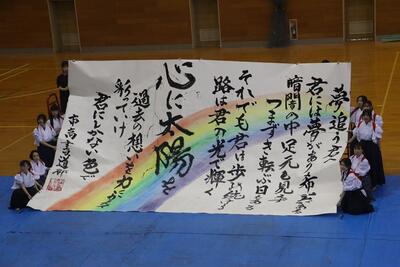 夢追う君へ
君には夢があり希望がある
暗闇の中足元も見えず
つまずき転ぶ日もある
それでも君は歩み続ける
路は君の光で輝く
心に太陽を
過去の想いを力にかえ
彩っていけ
君にしかない色で
書道部